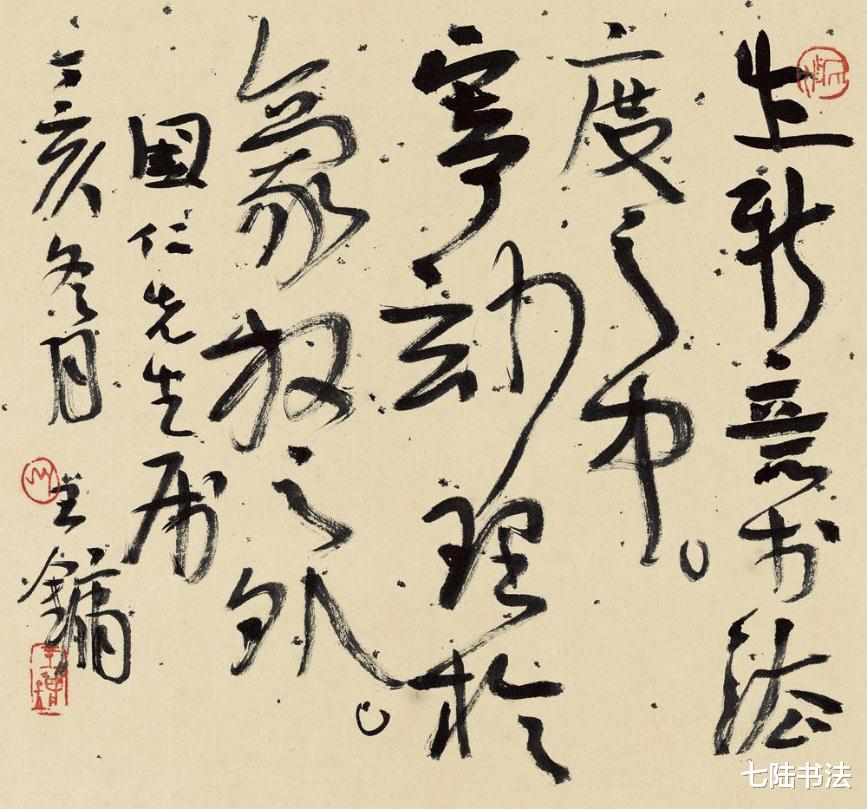 出新意於法
度之中。
寄妙理於
豪放之外。
国仁先生属
丁亥冬月
王鏞
七陆书法